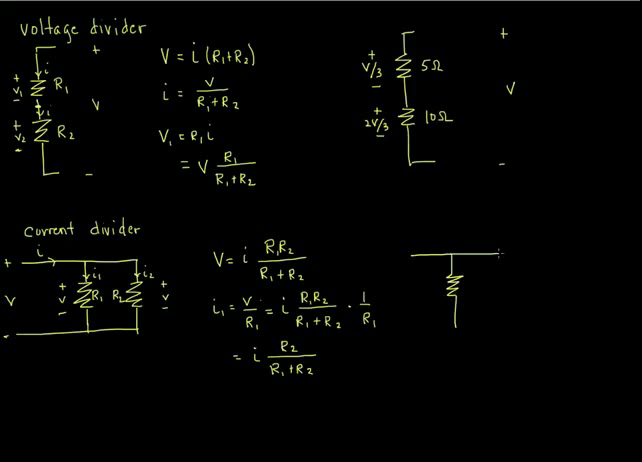 voltage divider
+
i
+
V₁
−
R₁
i
+
V₂
−
R₂
V
−
V = i (R₁+R₂)
i = V / (R₁+R₂)
V₁ = R₁ i
= V R₁ / (R₁+R₂)
+
+
V/3
−
5Ω
+
2V/3
−
10Ω
V
−
current divider
i
+
V
−
i₁
+
V
−
R₁
i₂
R₂
+
V
−
V = i R₁R₂ / (R₁+R₂)
i₁ = V/R₁ = i R₁R₂ / (R₁+R₂) · 1/R₁
= i R₂ / (R₁+R₂)